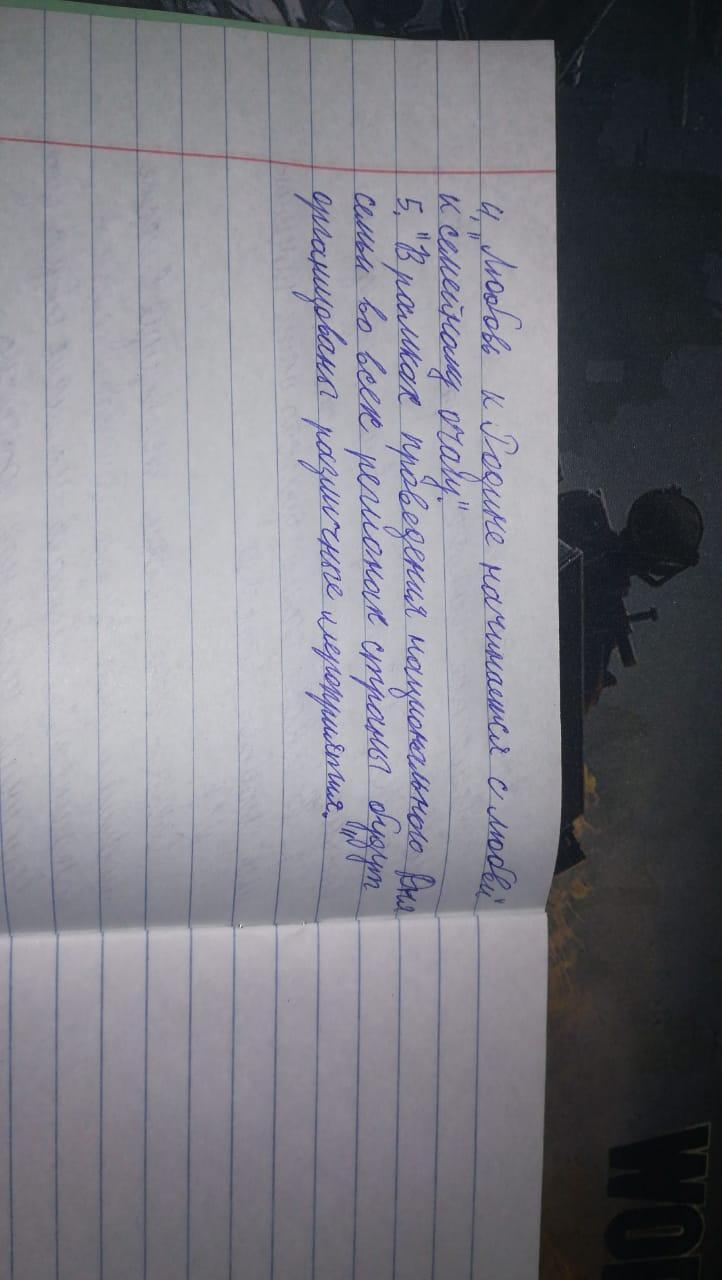 4. "Любовь к Родине начинается с любви
к семейному очагу."
5. "В рамках проведения национального Дня
семьи во всех регионах страны будут
организованы различные мероприятия."
WO